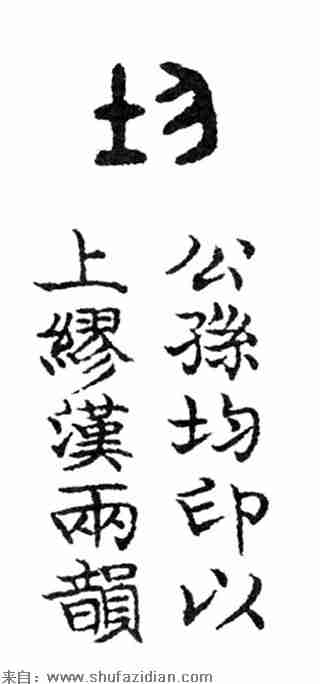 均
公孫均印以
上繆漢兩韻
来自：www.shufazidian.com